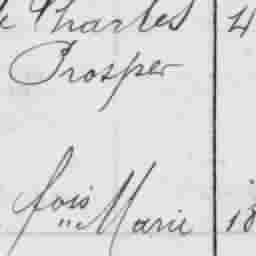 Charles 4
Prosper
fois
" Marie 18